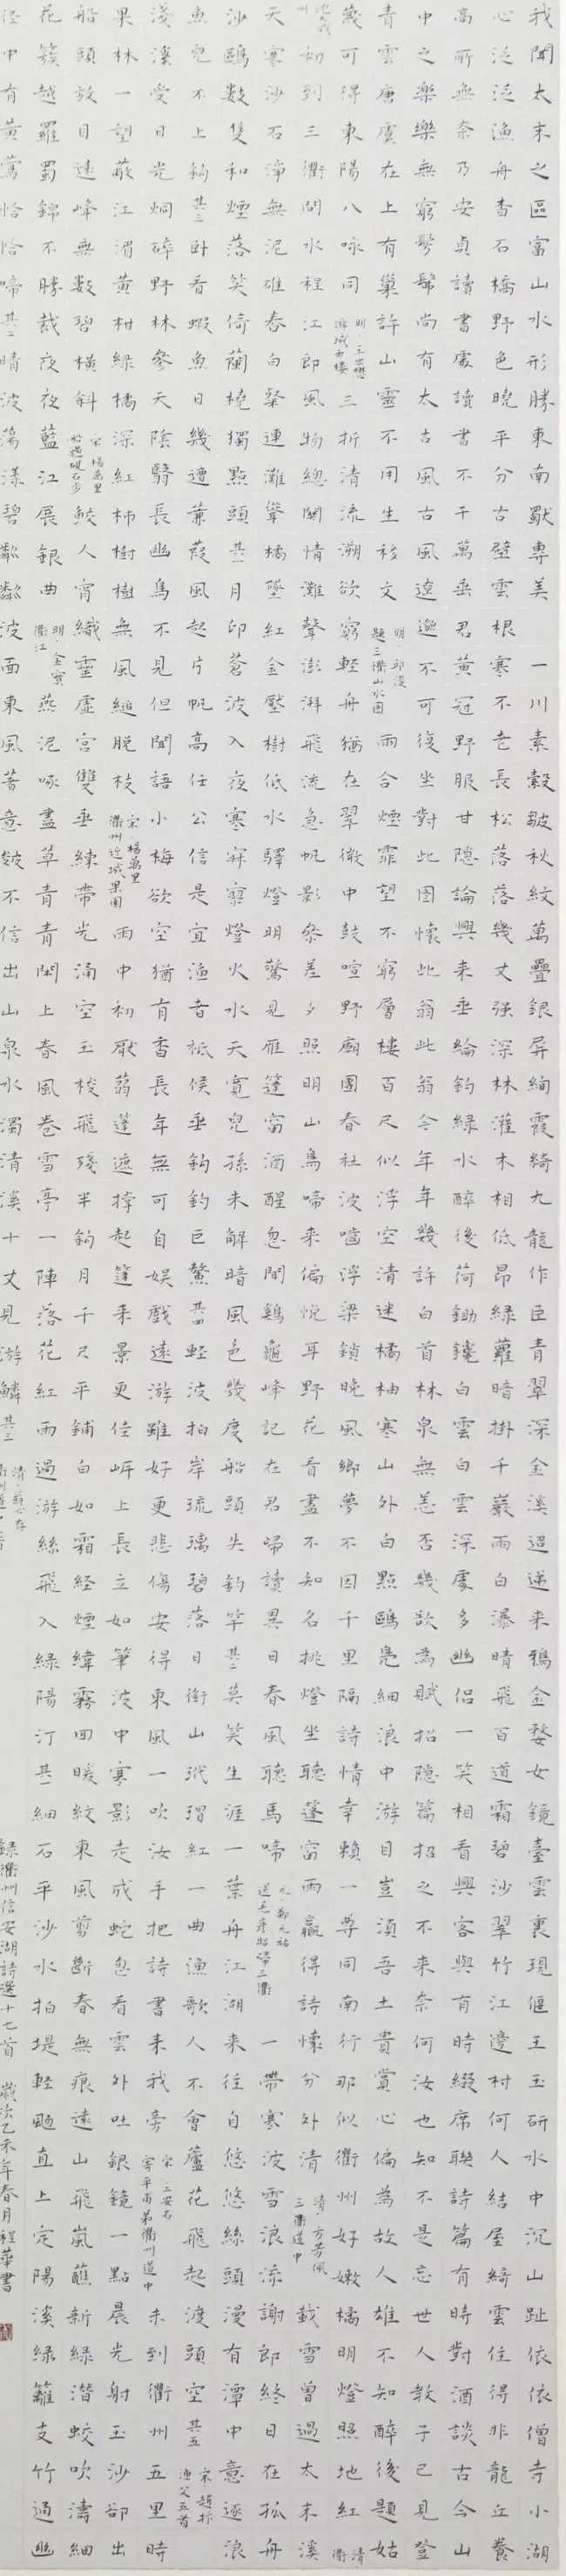 我聞太末之區富山水形勝東南獸專美一川素縠皺秋紋萬疊銀屏絢霞綺九龍作臣青翠深金溪迢遞来鴉金婺女鏡臺雲裏現偃王玉研水中沉山趾依依僧寺小湖
心泛泛漁舟杳石橋野色曉平分古壁雲根寒不老長松落落幾丈强深林灌木相低昂綠蘿暗掛千巖雨白瀑晴飛百道霜碧沙翠竹江邊村何人結屋綺雲住得非龍丘養
高所無奈乃安貞讀書處讀書不干萬垂君黄冠野服甘隱論興来垂綸釣綠水醉後荷鋤鑱白雲白雲深處多幽侶一笑相看興客與有時綴席聯詩篇有時對酒談古今山
中之樂樂無窮髣髴尚有太古風古風遼邈不可復坐對此圖懷此翁此翁今年年幾許白首林泉無恙否幾欲為賦招隱篇招之不来奈何汝也知不是忘世人教子已見登
青雲唐虞在上有巢許山靈不用生移文明·邱浚題三衢山水圖雨合煙霏望不窮層樓百尺似浮空清迷橘柚寒山外白點鷗鳧細浪中游目豈須吾土貴賞心偏為故人雄不知醉後題姑
蔑可得東陽八咏同明·王世懋游城西樓三折清流溯欲窮輕舟猶在翠微中鼓喧野廟團春社波嚙浮梁鎖晚風鄉夢不因千里隔詩情幸賴一尊同南行那似衢州好嫩橘明燈照地紅清衢
州初到三衢問水程江郎風物總關情灘聲澎湃飛流急帆影參差夕照明山鳥啼来偏悦耳野花看盡不知名挑燈坐聽蓬窗雨贏得詩懷分外清清·方芳佩三衢道中載雪曾過太末溪
天寒沙石淨無泥碓舂白粲連灘聲橘墜紅金壓樹低水驛燈明驚見雁篷窗酒醒忽聞鷄龜峰記在君歸讀異日春風聽馬啼元·鄭元祐送毛彥昭歸三衢一帶寒波雪浪流謝郎終日在孤舟
沙鷗數隻和煙落笑倚蘭橈獨點頭其一月印蒼波入夜寒寂寥燈火水天寬兒孫未解暗風色幾度船頭失釣竿其二莫笑生涯一葉舟江湖来往自悠悠絲頭漫有潭中意逐浪
魚兒不上鈎其三卧看蝦魚日幾遭蒹葭風起片帆高任公信是宜漁者祇候垂鈎釣巨鰲其四輕波拍岸琉璃碧落日銜山玳瑁紅一曲漁歌人不會蘆花飛起渡頭空其五宋·趙抃漁父五首
淺溪受日光炯碎野林參天陰翳長幽鳥不見但聞語小梅欲空猶有香長年無可自娱戲遠游雖好更悲傷安得東風一吹汝手把詩書来我旁宋·王安石寄平甫弟衢州道中未到衢州五里時
果林一望蔽江湄黄柑綠橘深紅柿樹樹無風縋脱枝宋·楊萬里衢州近城果園雨中初厭蒻篷遮撐起篷来景更佳岍上長立如筆波中寒影走成蛇忽看雲外吐銀鏡一點晨光射玉沙卻出
船頭放目遠峰無數碧橫斜宋·楊萬里船過硯石步鮫人宵織靈虚宮雙垂練帶光涌空玉梭飛殘半鈎月千尺平鋪白如霜經煙緯霧回暖紋東風剪斷春無痕遠山飛嵐蘸新綠潛蛟吹濤細
花簇越羅蜀錦不勝裁夜夜藍江展銀曲明·金實衢江燕泥啄盡草青青閑上春風卷雪亭一陣落花紅雨過游絲飛入綠陽汀其一細石平沙水拍堤輕颸直上定陽溪綠籬支竹通幽
徑中有黄鶯恰恰啼其二晴波蕩漾碧粼粼波面東風著意皴不信出山泉水濁清溪十丈見游鱗其三清·翁心存
錄衢州信安湖詩選十七首 歲次乙未年春月程華書